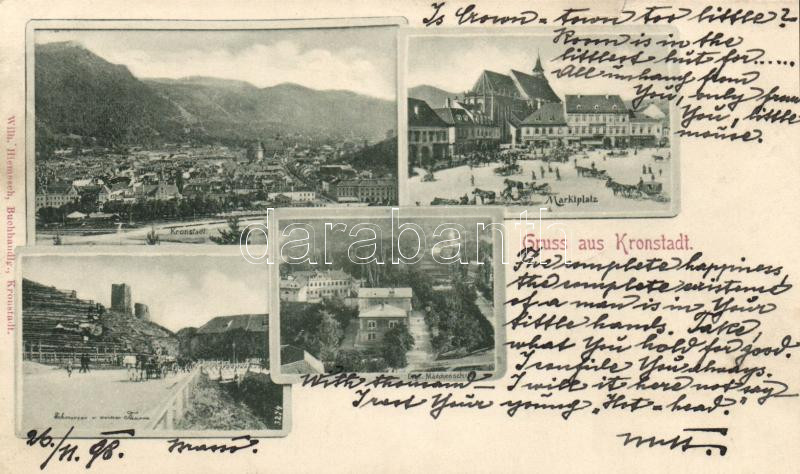 Is Crown=town too little?
Room is in the
littlest hut for.....
All unhang from
You, only from
You, little
mouse.
Kronstadt
Marktplatz
Gruss aus Kronstadt.
Wilh. Hiemesch, Buchhandlg., Kronstadt.
darabanth
The complete happiness
the complete existend
of a man is in Your
little hands. Take,
what You hold for good.
I confide You always.
With thousand — I will it here not say
I rest Your young "Hot=head."
26./11. 98. Brassó.